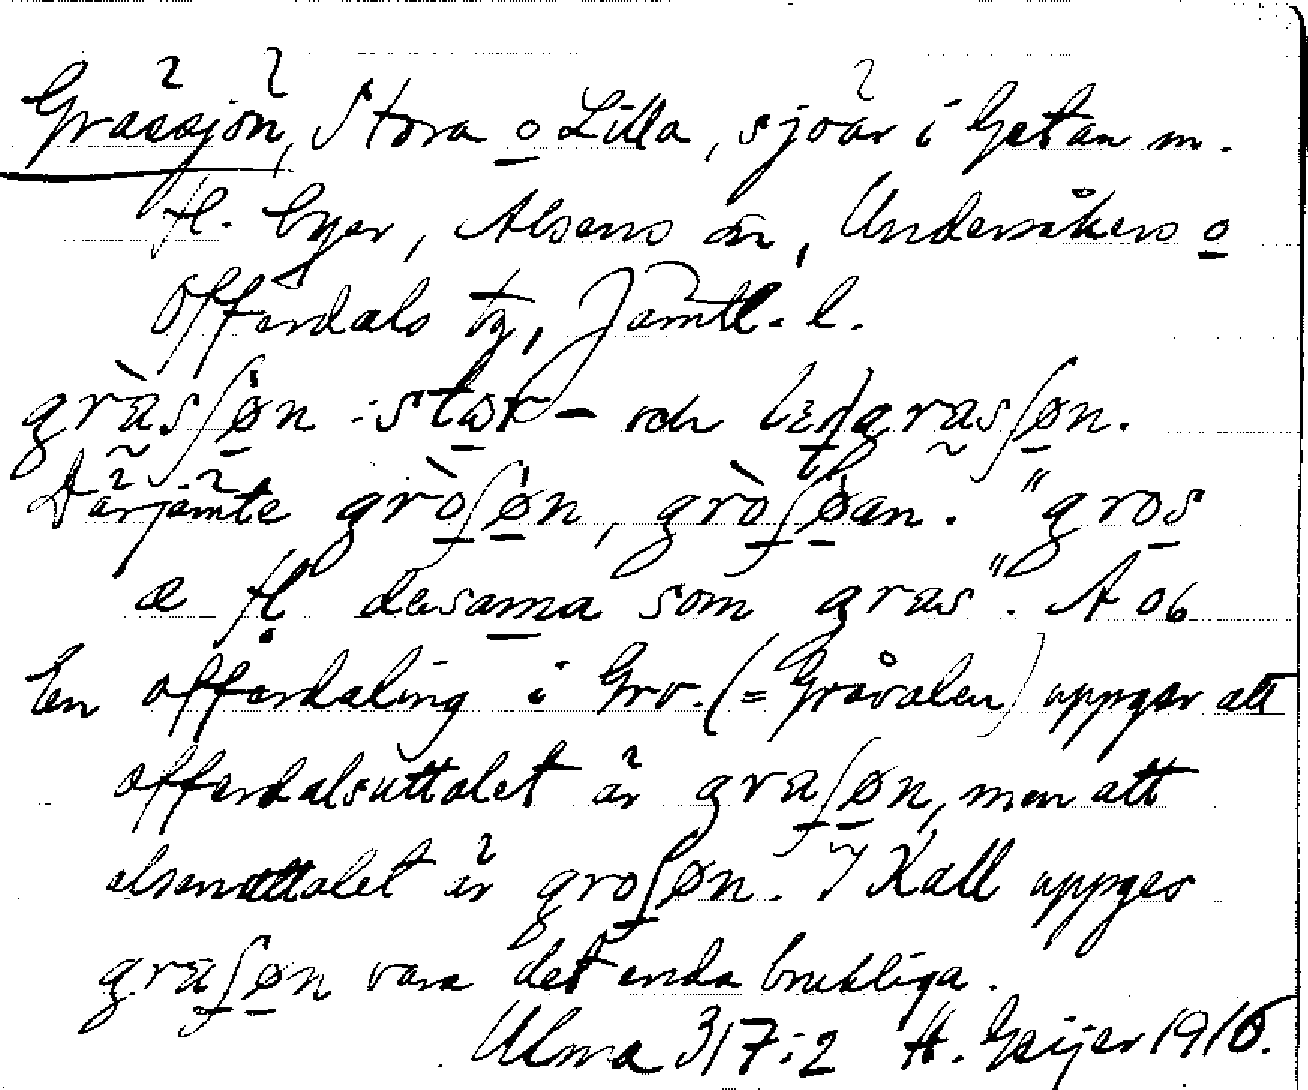 Grässjön, Stora o Lilla, sjöar i Getan m.
fl. byer, Alsens sn, Undersåkers o
Offerdals tg, Jämtl. l.
gràsʃøn : stor- och liṇgrasʃøn.
Därjämte gròʃøn, gròʃøan. "gros
æ fl desama som gras". A 06
En offerdaling i Grv. (= Gråvalen) uppger att
offerdalsuttalet är graʃøn, men att
alsenuttalet är groʃøn. I Kall uppges
graʃøn vara det enda brukliga.
Ulma 317:2 H. Geijer 1916.